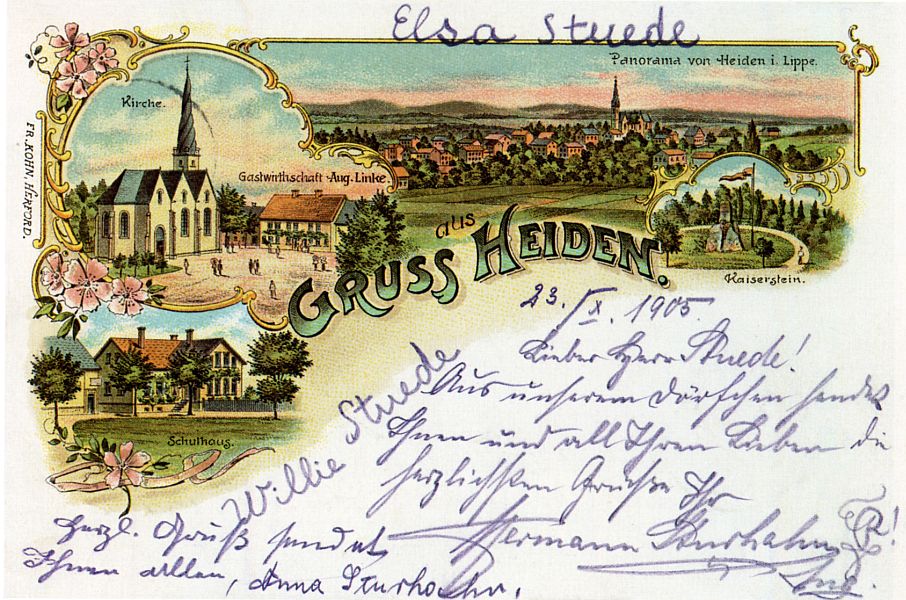 Elsa Stuede
Panorama von Heiden i. Lippe.
Kirche.
Gastwirthschaft Aug. Linke.
FR. KOHN, HERFORD.
GRUSS aus HEIDEN.
Kaiserstein.
Schulhaus.
23./X. 1905
Lieber Herr Stuede!
Aus unserem Dörfchen sendet
Ihnen und all Ihren Lieben die
herzlichsten Grüße Ihr
Hermann Sturhahn
Willie Stuede
Herzl. Gruß sendet
Ihnen allen, Anna Sturhahn.